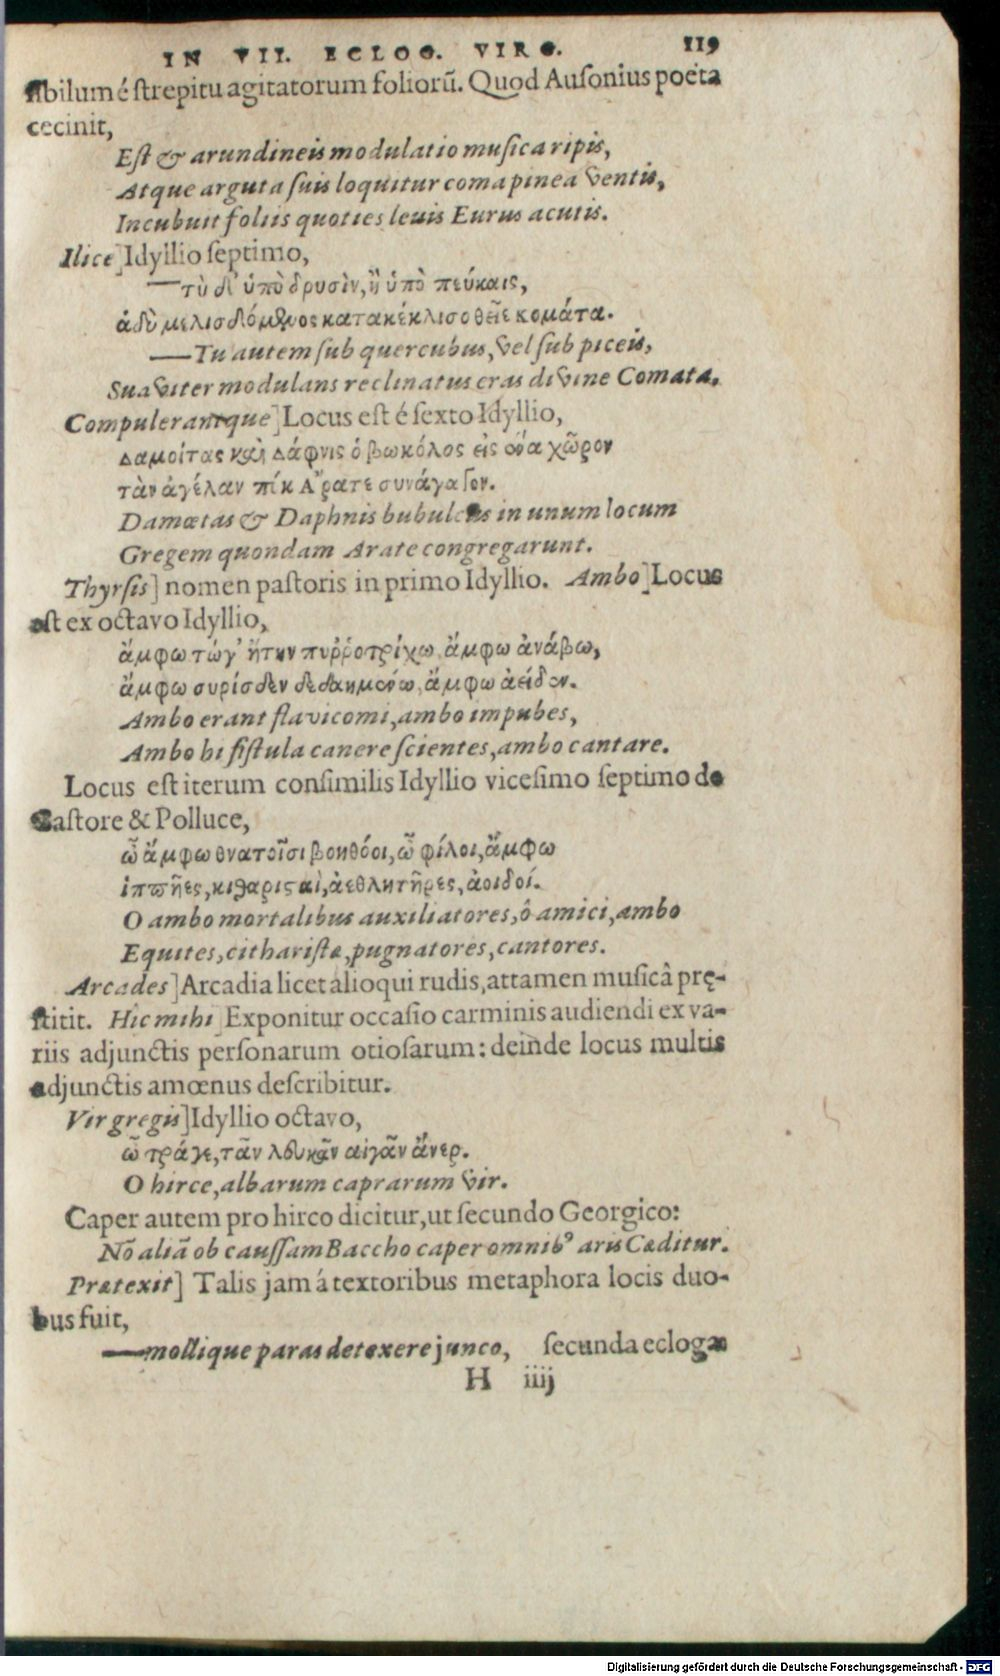 IN VII. ECLOG. VIRG. 119
sibilum é strepitu agitatorum foliorū. Quod Ausonius poëta
cecinit,
Est & arundineis modulatio musica ripis,
Atque arguta suis loquitur coma pinea ventis,
Incubuit foliis quoties levis Eurus acutis.
Ilice] Idyllio septimo,
—τὺ δ' ὑπὸ δρυσὶν, ἢ ὑπὸ πεύκαις,
ἁδὺ μελισδόμενος κατακέκλισο θεῖε κομάτα.
—Tu autem sub quercubus, vel sub piceis,
Suaviter modulans reclinatus eras divine Comata.
Compulerantque] Locus est é sexto Idyllio,
Δαμοίτας καὶ Δάφνις ὁ βωκόλος εἰς ἕνα χῶρον
τὰν ἀγέλαν πόκ' Ἄρατε συνάγαγον.
Damœtas & Daphnis bubulcus in unum locum
Gregem quondam Arate congregarunt.
Thyrsis] nomen pastoris in primo Idyllio. Ambo] Locus
est ex octavo Idyllio,
ἄμφω τώγ' ἤτην πυῤῥοτρίχω, ἄμφω ἀνάβω,
ἄμφω συρίσδεν δεδαημένω, ἄμφω ἀείδεν.
Ambo erant flavicomi, ambo impubes,
Ambo hi fistula canere scientes, ambo cantare.
Locus est iterum consimilis Idyllio vicesimo septimo de
Castore & Polluce,
ὦ ἄμφω θνατοῖσι βοηθόοι, ὦ φίλοι, ἄμφω
ἱππῆες, κιθαρισταὶ, ἀεθλητῆρες, ἀοιδοί.
O ambo mortalibus auxiliatores, ô amici, ambo
Equites, citharistæ, pugnatores, cantores.
Arcades] Arcadia licet alioqui rudis, attamen musicâ prę-
stitit. Hic mihi] Exponitur occasio carminis audiendi ex va-
riis adjunctis personarum otiosarum: deinde locus multis
adjunctis amœnus describitur.
Vir gregis] Idyllio octavo,
ὦ τράγε, τᾶν λευκᾶν αἰγᾶν ἄνερ.
O hirce, albarum caprarum vir.
Caper autem pro hirco dicitur, ut secundo Georgico:
Nō aliā ob caussam Baccho caper omnibꝰ aris Cæditur.
Prætexit] Talis jam á textoribus metaphora locis duo-
bus fuit,
—mollique paras detexere junco, secunda ecloga
H iiij
Digitalisierung gefördert durch die Deutsche Forschungsgemeinschaft - DFG